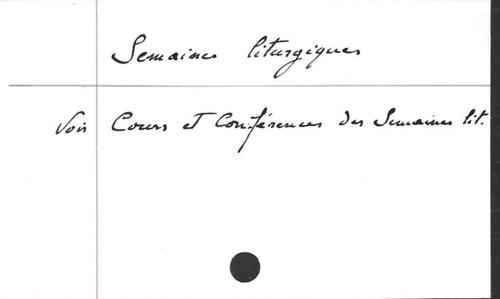 Semaines liturgiques
Voir Cours et Conférences des Semaines lit.